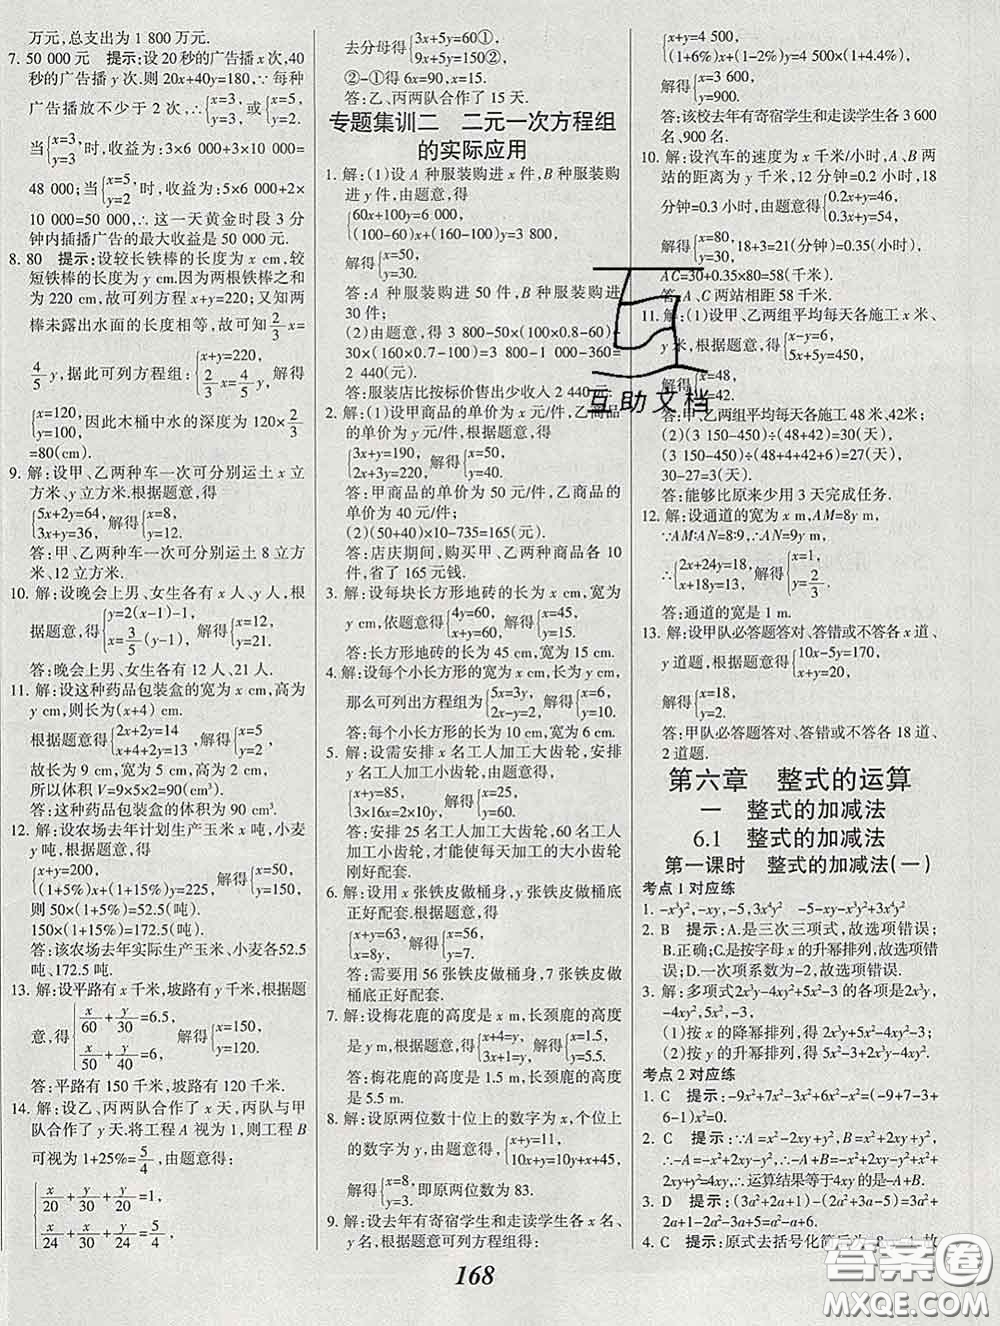 万元,总支出为 1 800 万元.
7. 50 000 元 提示:设 20 秒的广告播 x 次,40
秒的广告播 y 次.则 20x+40y=180,∵ 每种
广告播放不少于 2 次,∴{x=3, y=3, 或{x=5, y=2.
当{x=3, y=3 时,收益为:3×6 000+3×10 000=
48 000;当{x=5, y=2 时,收益为:5×6 000+2×
10 000=50 000,∴ 这一天黄金时段 3 分
钟内插播广告的最大收益是 50 000 元.
8. 80 提示:设较长铁棒的长度为 x cm,较
短铁棒的长度为 y cm.因为两根铁棒之和
为 220 cm,故可列方程 x+y=220;又知两
棒未露出水面的长度相等,故可知 2/3 x=
4/5 y,据此可列方程组:{x+y=220, 2/3 x=4/5 y, 解得
{x=120, y=100, 因此木桶中水的深度为 120×2/3
=80(cm).
9. 解:设甲、乙两种车一次可分别运土 x 立
方米、y 立方米.根据题意,得
{5x+2y=64, 3x+3y=36, 解得{x=8, y=12.
答:甲、乙两种车一次可分别运土 8 立方
米、12 立方米.
10. 解:设晚会上男、女生各有 x 人、y 人,根
据题意,得{y=2(x-1)-1, x=3/5(y-1), 解得{x=12, y=21.
答:晚会上男、女生各有 12 人、21 人.
11. 解:设这种药品包装盒的宽为 x cm,高为
y cm,则长为(x+4) cm.
根据题意得{2x+2y=14, x+4+2y=13, 解得{x=5, y=2.
故长为 9 cm,宽为 5 cm,高为 2 cm.
所以体积 V=9×5×2=90(cm³).
答:这种药品包装盒的体积为 90 cm³.
12. 解:设农场去年计划生产玉米 x 吨,小麦
y 吨.根据题意,得
{x+y=200, (1+5%)x+(1+15%)y=225, 解得{x=50, y=150.
则 50×(1+5%)=52.5(吨).
150×(1+15%)=172.5(吨).
答:该农场去年实际生产玉米、小麦各52.5
吨、172.5 吨.
13. 解:设平路有 x 千米,坡路有 y 千米,根据题
意,得{x/60+y/30=6.5, x/50+y/40=6, 解得{x=150, y=120.
答:平路有 150 千米,坡路有 120 千米.
14. 解:设乙、丙两队合作了 x 天,丙队与甲
队合作了 y 天.将工程 A 视为 1,则工程 B
可视为 1+25%=5/4,由题意得:
{x/20+y/30+y/24=1, x/24+y/30+x/24=5/4,
去分母得{3x+5y=60①, 9x+5y=150②,
②-①得 6x=90,x=15.
答:乙、丙两队合作了 15 天.
专题集训二 二元一次方程组
的实际应用
1. 解:(1)设 A 种服装购进 x 件,B 种服装购
进 y 件,由题意,得
{60x+100y=6 000, (100-60)x+(160-100)y=3 800,
解得{x=50, y=30.
答:A 种服装购进 50 件,B 种服装购进
30 件;
(2)由题意,得 3 800-50×(100×0.8-60)-
30×(160×0.7-100)=3 800-1 000-360=
2 440(元).
答:服装店比按标价售出少收入 2 440 元.
2. 解:(1)设甲商品的单价为 x 元/件,乙商品
的单价为 y 元/件,根据题意,得
{3x+y=190, 2x+3y=220, 解得{x=50, y=40.
答:甲商品的单价为 50 元/件,乙商品的
单价为 40 元/件;
(2)(50+40)×10-735=165(元).
答:店庆期间,购买甲、乙两种商品各 10
件,省了 165 元钱.
3. 解:设每块长方形地砖的长为 x cm,宽为
y cm,依题意得{4y=60, x+y=60, 解得{x=45, y=15.
答:长方形地砖的长为 45 cm,宽为 15 cm.
4. 解:设每个小长方形的宽为 x cm,长为 y cm,
那么可列出方程组为{5x=3y, 2x-y=2, 解得{x=6, y=10.
答:每个小长方形的长为 10 cm,宽为 6 cm.
5. 解:设需安排 x 名工人加工大齿轮,安排
y 名工人加工小齿轮,由题意得:
{x+y=85, 3×16x=2×10y, 解得{x=25, y=60.
答:安排 25 名工人加工大齿轮,60 名工人
加工小齿轮,才能使每天加工的大小齿轮
刚好配套.
6. 解:设用 x 张铁皮做桶身,y 张铁皮做桶底
正好配套.根据题意,得
{x+y=63, x=8y, 解得{x=56, y=7.
答:需要用 56 张铁皮做桶身,7 张铁皮做
桶底正好配套.
7. 解:设梅花鹿的高度是 x m,长颈鹿的高度
是 y m,根据题意,得{x+4=y, 3x+1=y, 解得{x=1.5, y=5.5.
答:梅花鹿的高度是 1.5 m,长颈鹿的高度
是 5.5 m.
8. 解:设原两位数十位上的数字为 x,个位上
的数字为 y,由题意得:{x+y=11, 10x+y=10y+x+45,
解得{x=8, y=3. 即原两位数为 83.
9. 解:设去年有寄宿学生和走读学生各 x 名、
y 名,根据题意可列方程组得:
{x+y=4 500, (1+6%)x+(1-2%)y=4 500×(1+4.4%),
解得{x=3 600, y=900.
答:该校去年有寄宿学生和走读学生各 3 600
名、900 名.
10. 解:设汽车的速度为 x 千米/小时,A、B 两
站的距离为 y 千米.12 分钟=0.2 小时,18
分钟=0.3 小时,由题意得{0.2x+y=46, 0.3x+y=54,
解得{x=80, y=30, 18+3=21(分钟)=0.35(小时),
AC=30+0.35×80=58(千米).
答:A、C 两站相距 58 千米.
11. 解:(1)设甲、乙两组平均每天各施工 x 米、
y 米,根据题意,得{x-y=6, 5x+5y=450,
解得{x=48, y=42.
答:甲、乙两组平均每天各施工 48 米,42米;
(2)(3 150-450)÷(48+42)=30(天),
(3 150-450)÷(48+4+42+6)=27(天),
30-27=3(天).
答:能够比原来少用 3 天完成任务.
12. 解:设通道的宽为 x m,AM=8y m,
∵AM∶AN=8∶9,∴AN=9y m,
∴{2x+24y=18, x+18y=13, 解得{x=1, y=2/3.
答:通道的宽是 1 m.
13. 解:设甲队必答题答对、答错或不答各 x 道、
y 道题,根据题意,得{10x-5y=170, x+y=20,
解得{x=18, y=2.
答:甲队必答题答对、答错或不答各 18 道、
2 道题.
第六章 整式的运算
一 整式的加减法
6.1 整式的加减法
第一课时 整式的加减法(一)
考点 1 对应练
1. -x³y²,-xy,-5,3x⁴y² -5-xy-x³y²+3x⁴y²
2. B 提示:A.是三次三项式,故选项错误;
B.正确;C.是按字母 x 的升幂排列,故选项错
误;D.一次项系数为-2,故选项错误.
3. 解:多项式2x³y-4xy²+5x²-3的各项为2x³y,
-4xy²,5x²,-3,
(1)按 x 的降幂排列,得 2x³y+5x²-4xy²-3;
(2)按 y 的升幂排列,得 5x²-3+2x³y-4xy².
考点 2 对应练
1. C 提示:-9x²+7x²-3x²+6x²-x²=(-9+7-3+
6-1)x²=0.
2. C 提示:∵A=x²-2xy+y²,B=x²+2xy+y²,
∴-A=-x²+2xy-y²,∴-A+B=-x²+2xy-y²+x²+
2xy+y²=4xy,∴运算结果等于4xy的是-A+B.
3. D 提示:(3a²+2a+1)-(2a²+3a-5)=3a²+
2a+1-2a²-3a+5=a²-a+6.
4. C 提示:原式去括号化简后为
168
互助文档
答案圈
MXQE.COM